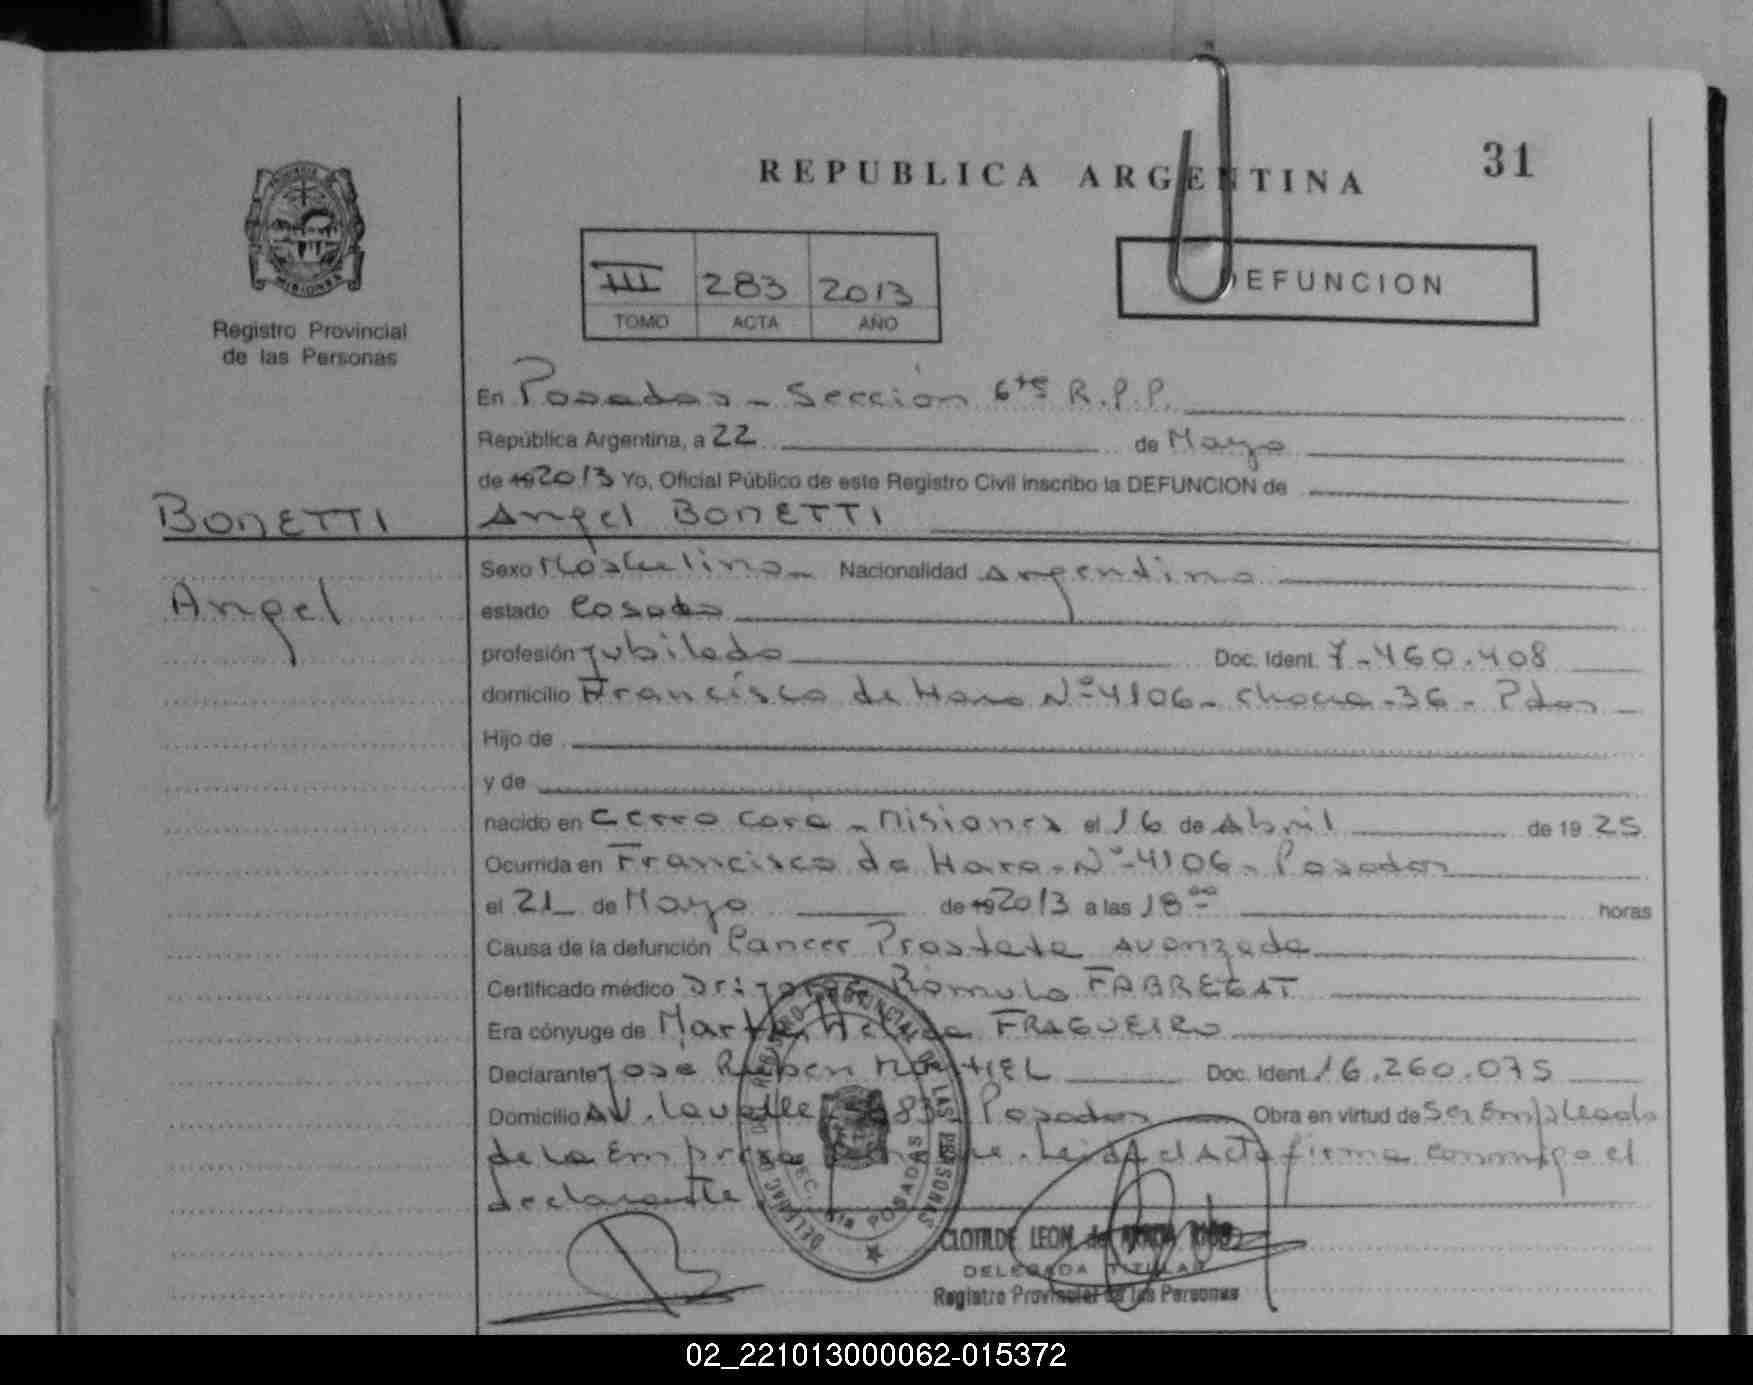 REPUBLICA ARGENTINA
31
III 283 2013
TOMO ACTA AÑO
DEFUNCION
MISIONES
Registro Provincial
de las Personas
En Posadas - Sección 6ta R.P.P.
República Argentina, a 22 de Mayo
de 19 2013 Yo, Oficial Público de este Registro Civil inscribo la DEFUNCION de
BONETTI
Angel BONETTI
Angel
Sexo Masculino - Nacionalidad Argentina
estado Casado
profesión Jubilado Doc. Ident. 7.460.408
domicilio Francisco de Haro Nº 4106 - Chacra - 36 - Pdas -
Hijo de
y de
nacido en Cerro Corá - Misiones el 16 de Abril de 19 25
Ocurrida en Francisco de Haro - Nº - 4106 - Posadas
el 21 de Mayo de 19 2013 a las 18 00 horas
Causa de la defunción Cancer Prostata Avanzada
Certificado médico Rómulo FABREGAT
Era cónyuge de FRAGUEIRO
Declarante José Ruben Doc. Ident. 16.260.075
Domicilio Av. Lavalle Posadas Obra en virtud de Ser Empleado
de la Empresa Leida el Acta firma conmigo el
declarante
DELEGAC. DEL REGISTRO PROVINCIAL DE LAS PERSONAS
SEC. 6ta POSADAS
CLOTILDE LEON de
DELEGADA TITULAR
Registro Provincial de las Personas
02_221013000062-015372